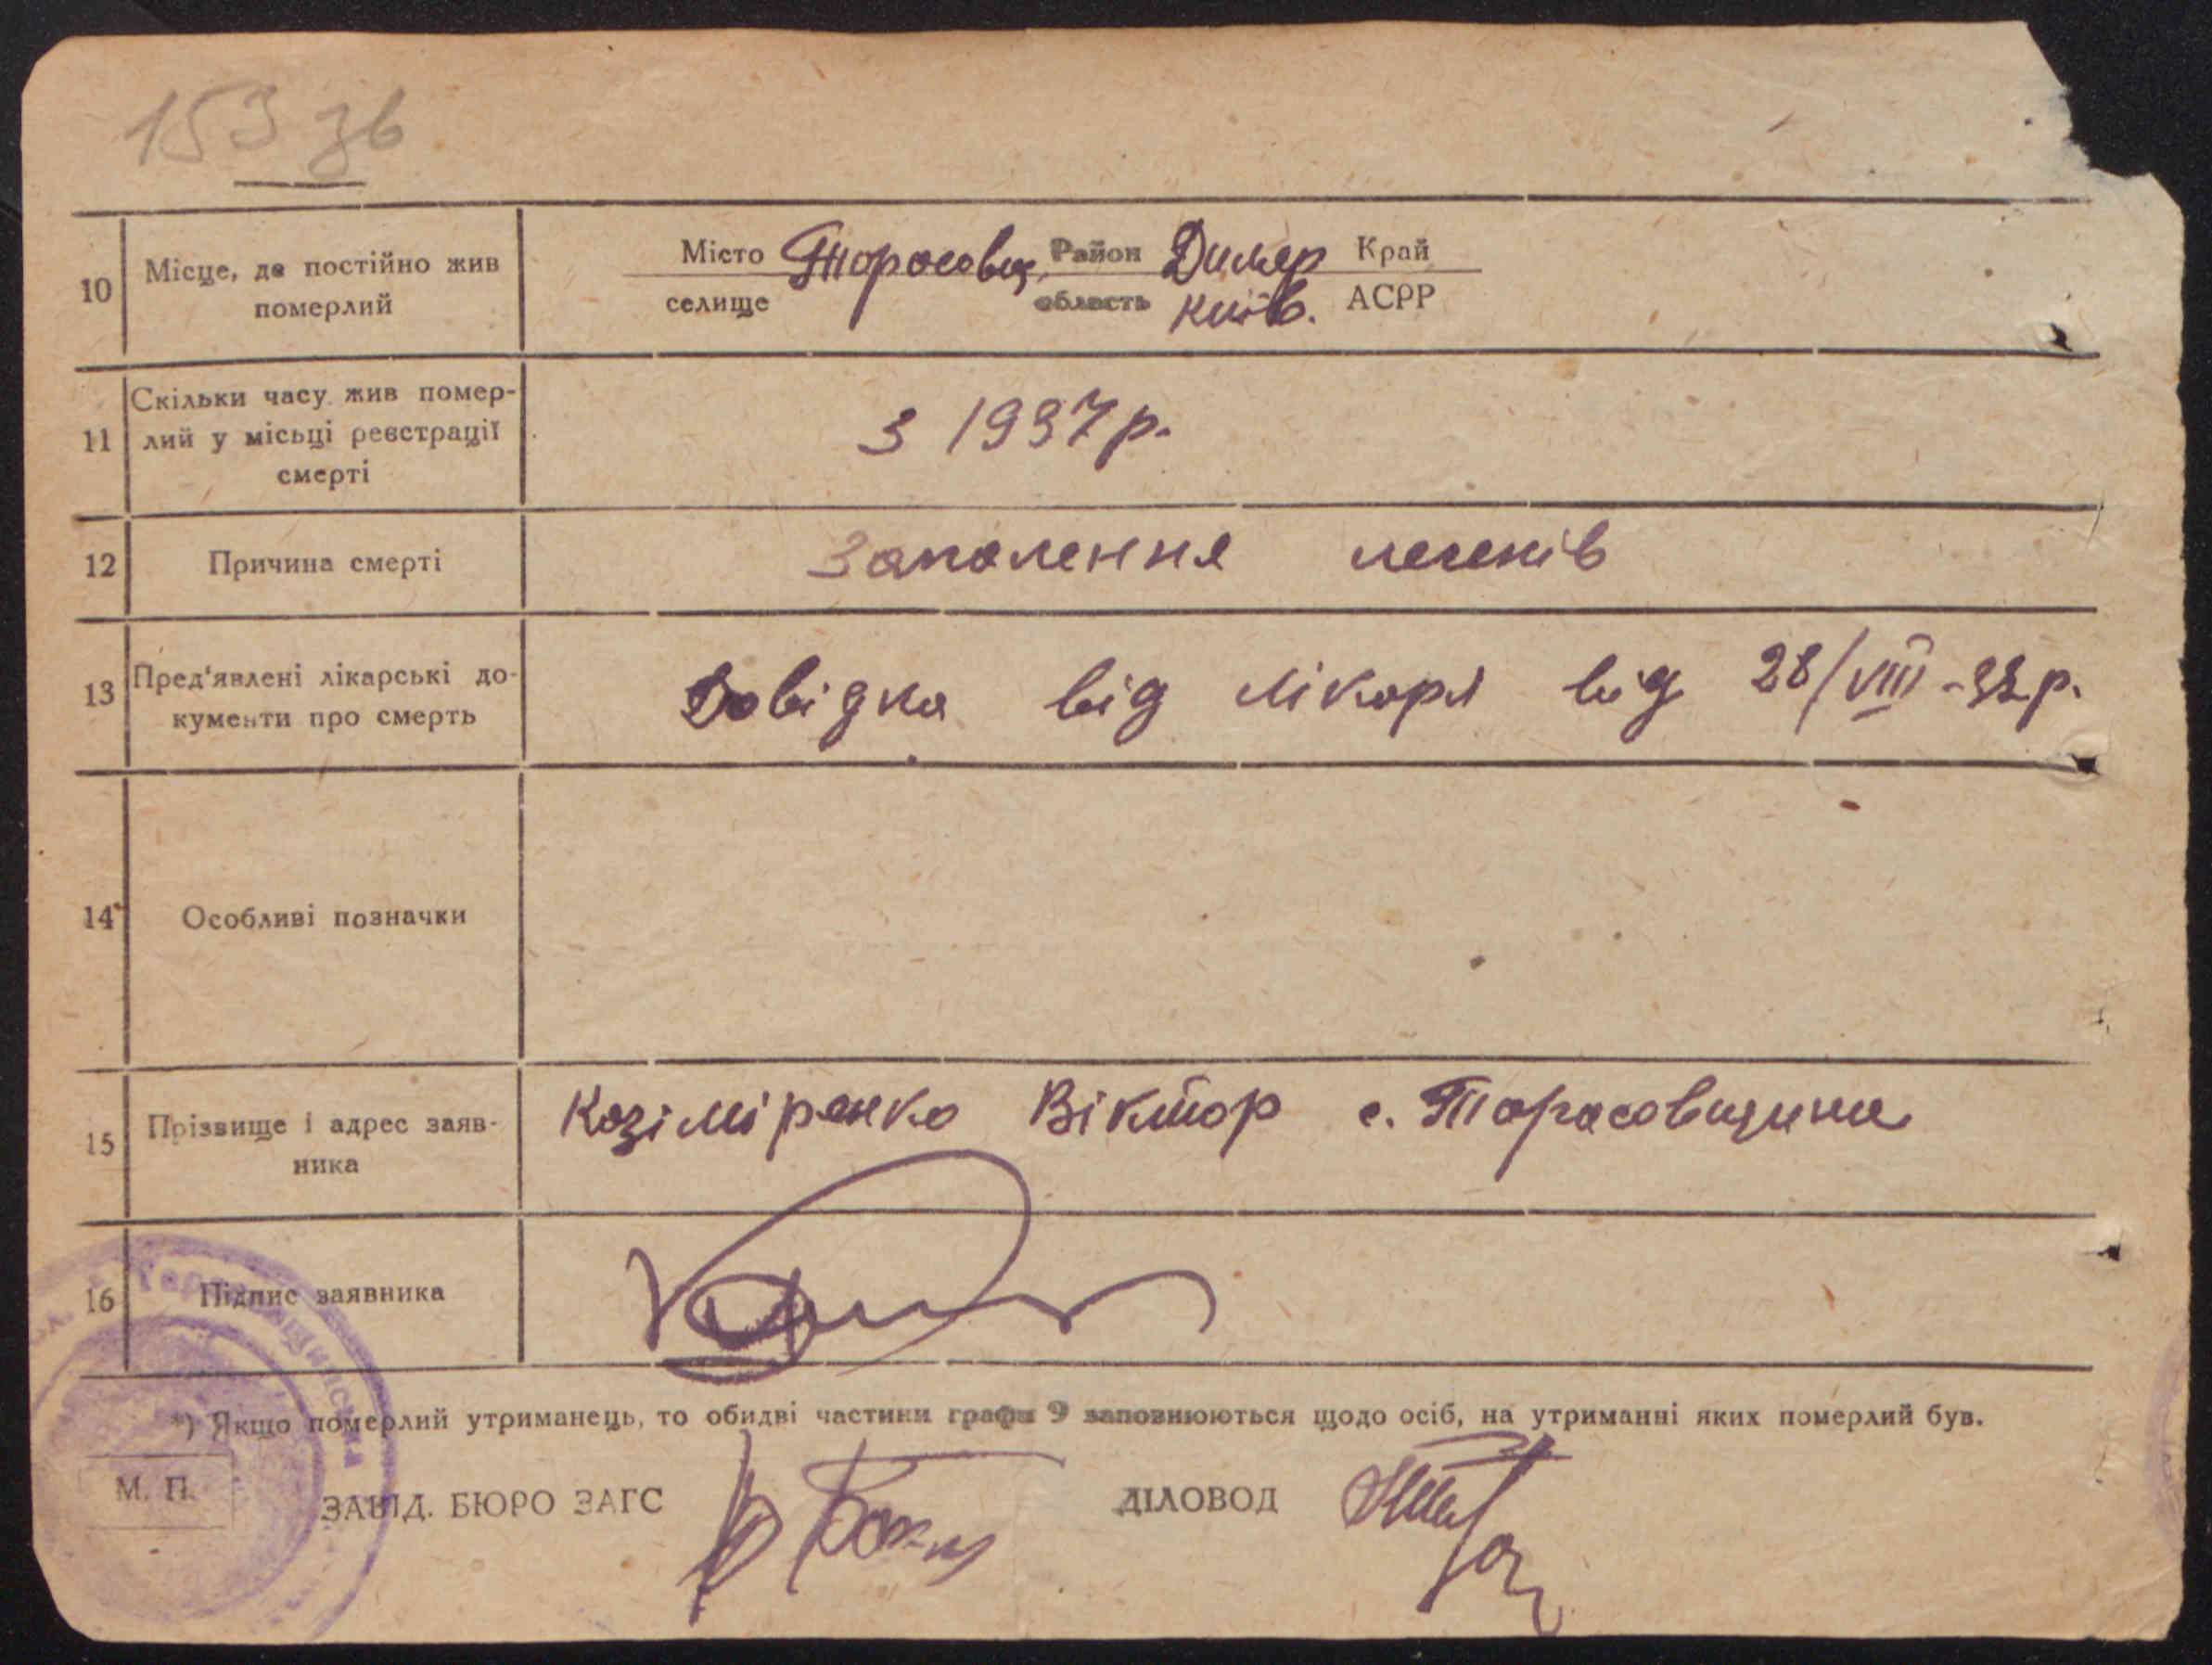 153 зв
10 Місце, де постійно жив померлий
Місто селище Торосовщ. Район область Димер Київ. Край АСРР
11 Скільки часу жив помер-
лий у місьці реєстрації
смерті
з 1937 р.
12 Причина смерті Запалення легенів
13 Пред'явлені лікарські до-
кументи про смерть
Довідка від лікаря від 28/VIII-38 р.
14 Особливі позначки
15 Прізвище і адрес заяв-
ника
Козіміренко Віктор с. Тарасовщина
16 Підпис заявника
*) Якщо померлий утриманець, то обидві частини графи 9 заповнюються щодо осіб, на утриманні яких померлий був.
М. П.
ЗАВІД. БЮРО ЗАГС ДІЛОВОД